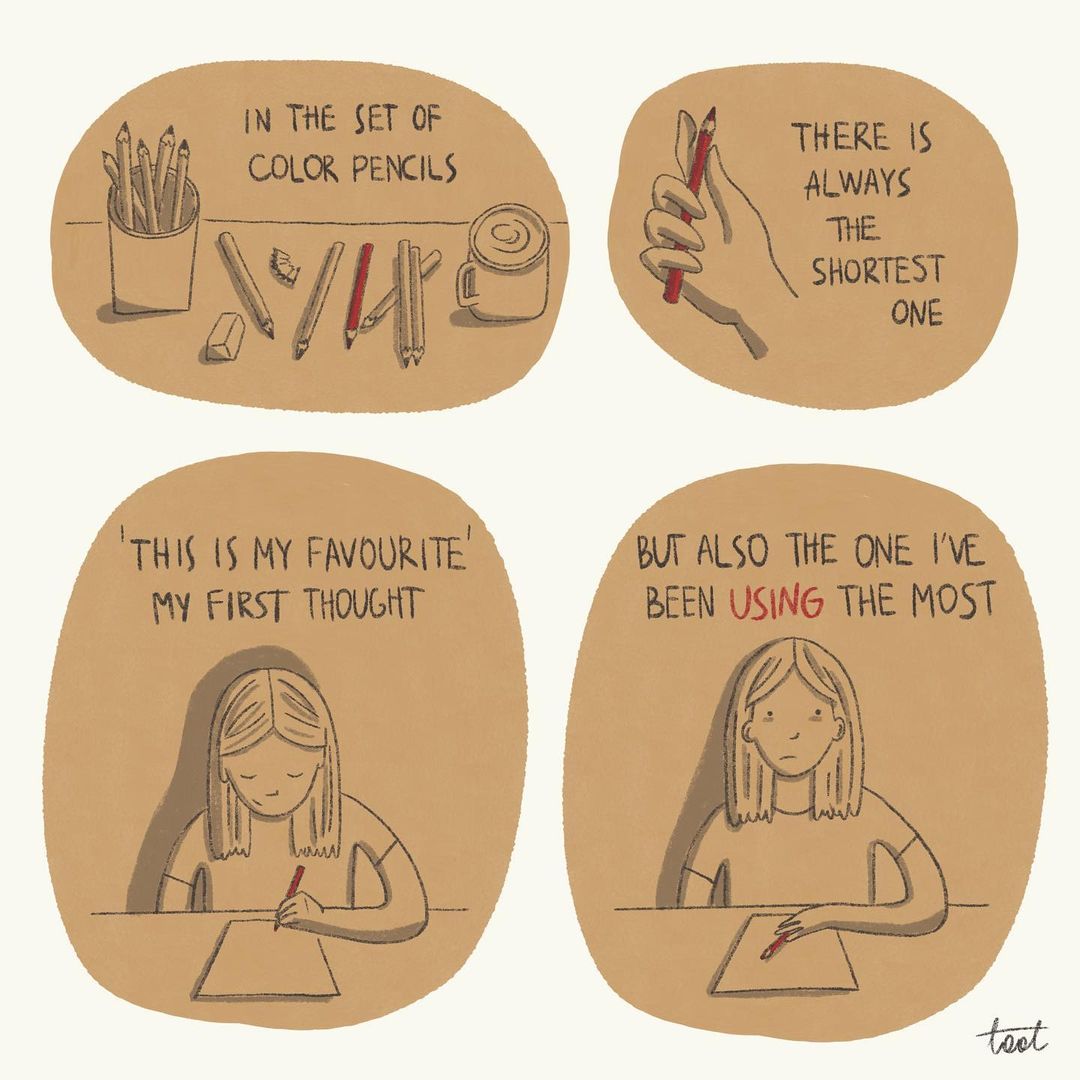 IN THE SET OF
COLOR PENCILS
THERE IS
ALWAYS
THE
SHORTEST
ONE
'THIS IS MY FAVOURITE'
MY FIRST THOUGHT
BUT ALSO THE ONE I'VE
BEEN USING THE MOST